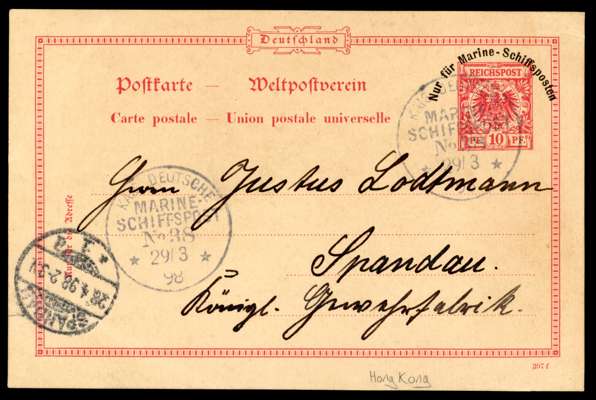 Deutschland
Nur für Marine-Schiffsposten
REICHSPOST
10 PF
Postkarte — Weltpostverein
Carte postale — Union postale universelle
KAIS. DEUTSCHE
MARINE-
SCHIFFSPOST
No 38
29/3
KAIS. DEUTSCHE
MARINE-
SCHIFFSPOST
No 38
* 29/3 *
98
Herrn Justus Lodtmann
Spandau.
Königl. Gewehrfabrik.
Nur für die Adresse
SPANDAU
28.4.98
* 1.
297 f
Hong Kong